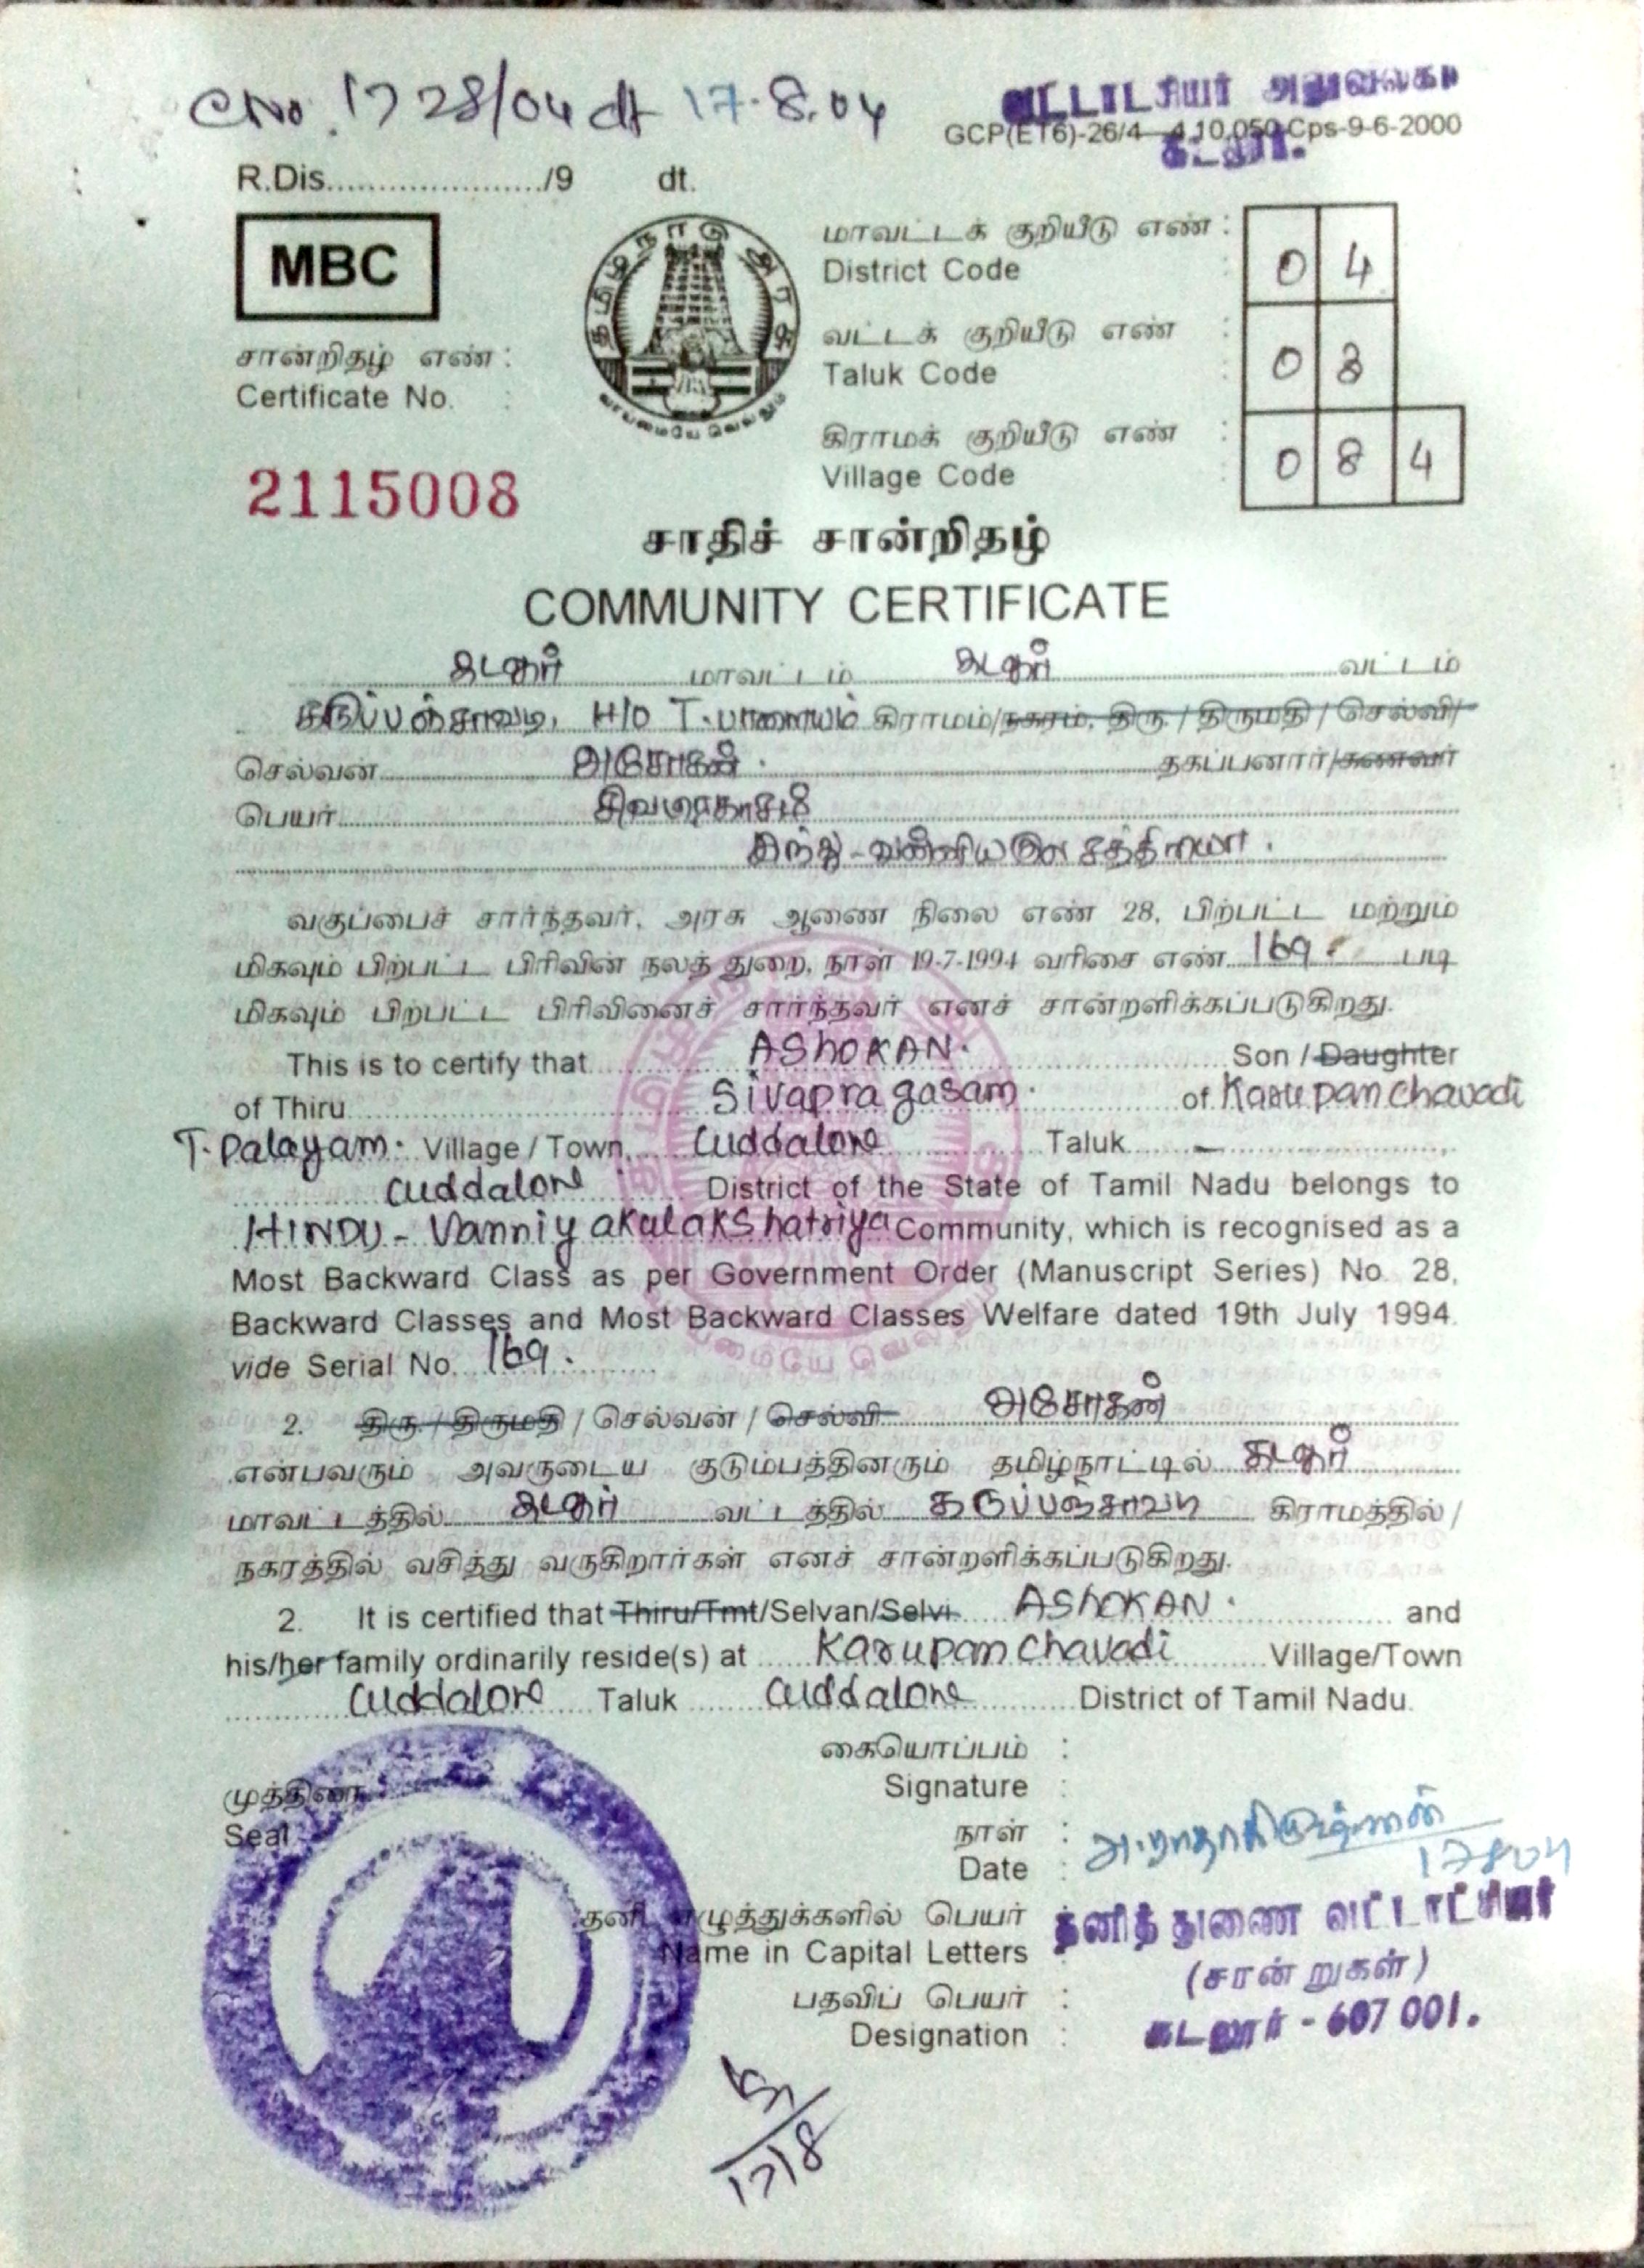 CNo. 1728/04 dt 17.8.04
வட்டாட்சியர் அலுவலகம்
GCP(ET6)-26/4—4,10,050 Cps-9-6-2000
கடலூர்.
R.Dis...................../9 dt.
MBC
தமிழ்நாடு அரசு
வாய்மையே வெல்லும்
மாவட்டக் குறியீடு எண் :
District Code : 0 4
வட்டக் குறியீடு எண் :
Taluk Code : 0 3
கிராமக் குறியீடு எண் :
Village Code : 0 8 4
சான்றிதழ் எண் :
Certificate No. :
2115008
சாதிச் சான்றிதழ்
COMMUNITY CERTIFICATE
கடலூர் மாவட்டம் கடலூர் வட்டம்
கருப்பன்சாவடி, H/o T.பாளையம் கிராமம்/நகரம், திரு / திருமதி / செல்வி/
செல்வன் அசோகன் . தகப்பனார்/கணவர்
பெயர் சிவபிரகாசம்
இந்து - வன்னிய குல சத்திரியா .
வகுப்பைச் சார்ந்தவர், அரசு ஆணை நிலை எண் 28, பிற்பட்ட மற்றும்
மிகவும் பிற்பட்ட பிரிவின் நலத் துறை, நாள் 19-7-1994 வரிசை எண் 169. படி
மிகவும் பிற்பட்ட பிரிவினைச் சார்ந்தவர் எனச் சான்றளிக்கப்படுகிறது.
This is to certify that ASHOKAN. Son / Daughter
of Thiru Sivapragasam. of Karupanchavadi
T. Palayam. Village / Town, Cuddalore Taluk –
Cuddalore District of the State of Tamil Nadu belongs to
HINDU - Vanniyakulakshatriya Community, which is recognised as a
Most Backward Class as per Government Order (Manuscript Series) No. 28,
Backward Classes and Most Backward Classes Welfare dated 19th July 1994.
vide Serial No. 169.
2. திரு / திருமதி / செல்வன் / செல்வி அசோகன்
என்பவரும் அவருடைய குடும்பத்தினரும் தமிழ்நாட்டில் கடலூர்
மாவட்டத்தில் கடலூர் வட்டத்தில் கருப்பன்சாவடி கிராமத்தில் /
நகரத்தில் வசித்து வருகிறார்கள் எனச் சான்றளிக்கப்படுகிறது.
2. It is certified that Thiru/Tmt/Selvan/Selvi ASHOKAN. and
his/her family ordinarily reside(s) at Karupanchavadi Village/Town
Cuddalore Taluk Cuddalore District of Tamil Nadu.
கையொப்பம் :
Signature :
முத்திரை :
Seal :
நாள் :
Date :
அ.ராதாகிருஷ்ணன்
17804
தனி எழுத்துக்களில் பெயர்
Name in Capital Letters :
பதவிப் பெயர் :
Designation :
தனித் துணை வட்டாட்சியர்
(சான்றுகள்)
கடலூர் - 607 001.
17/8